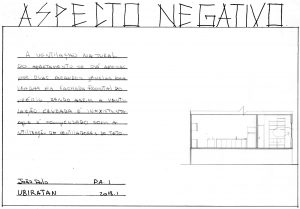 ASPECTO NEGATIVO
A VENTILAÇÃO NATURAL
DO APARTAMENTO SE DÁ APENAS
POR DUAS GRANDES JANELAS LOCA-
LIZADAS NA FACHADA FRONTAL DO
PRÉDIO, SENDO ASSIM A VENTI-
LAÇÃO CRUZADA É INEXISTENTE
QUE É COMPENSADO COM A
UTILIZAÇÃO DE VENTILADORES DE TETO.
João Paulo PA 1
UBIRATAN 2018.1